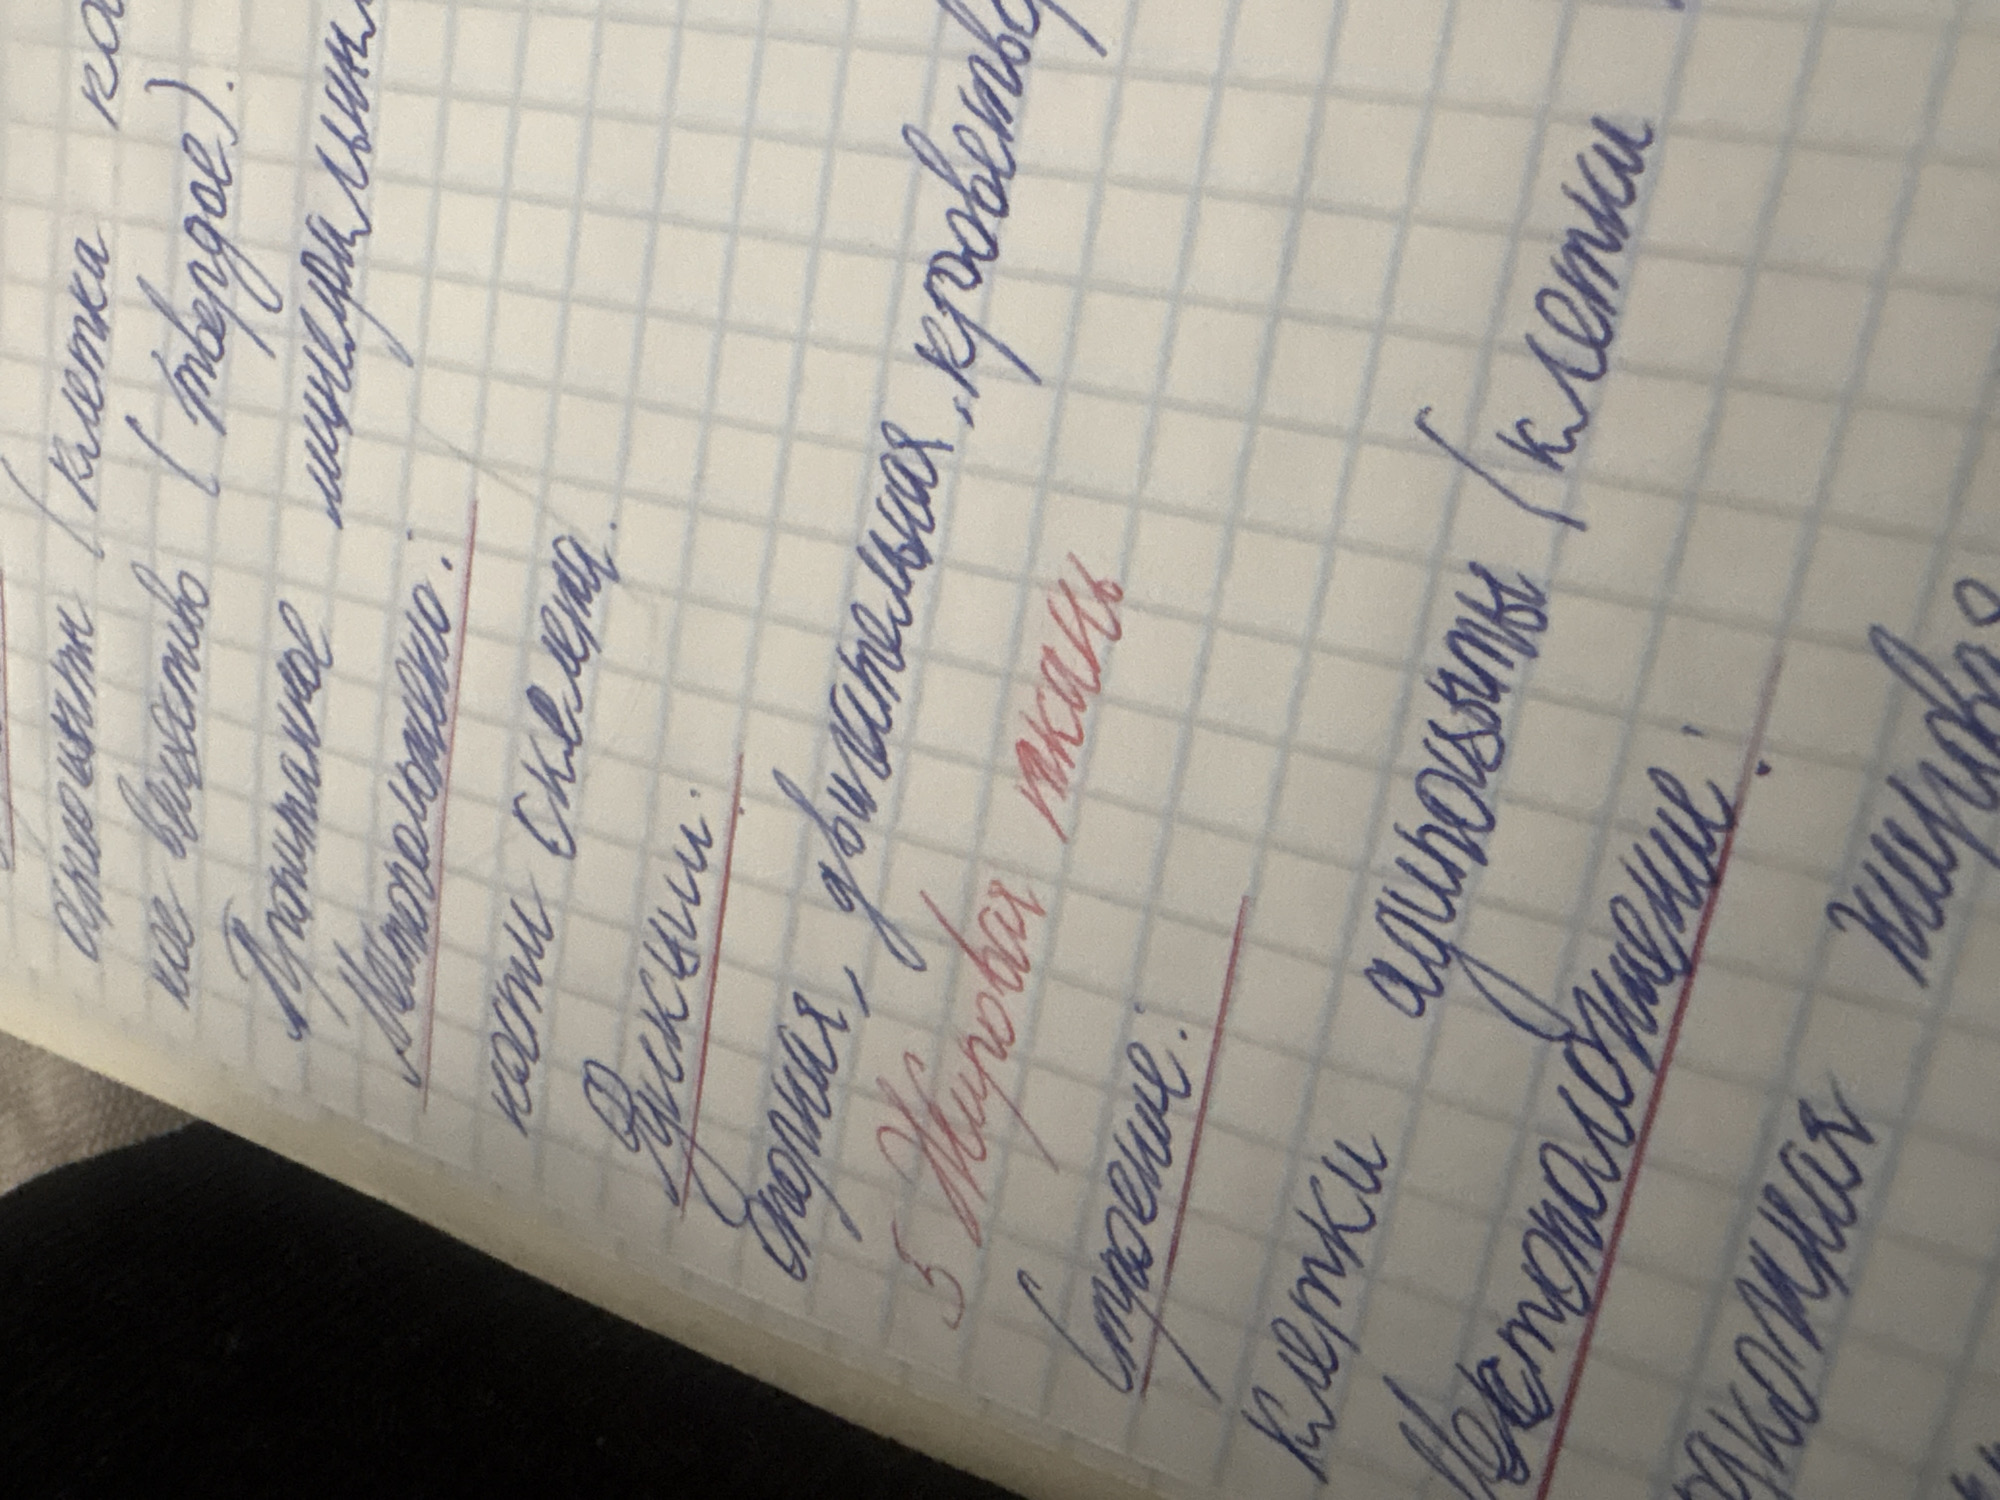 остеоциты (клетка ко
ное вещество (твердое).
Пропитанное минеральны
Местоположение:
кости скелета.
Функции:
Опорная, двигательная, кроветвор
5 Жировая ткань
Строение:
клетки адипозыты (клетки
Местоположение:
подкожная жировая